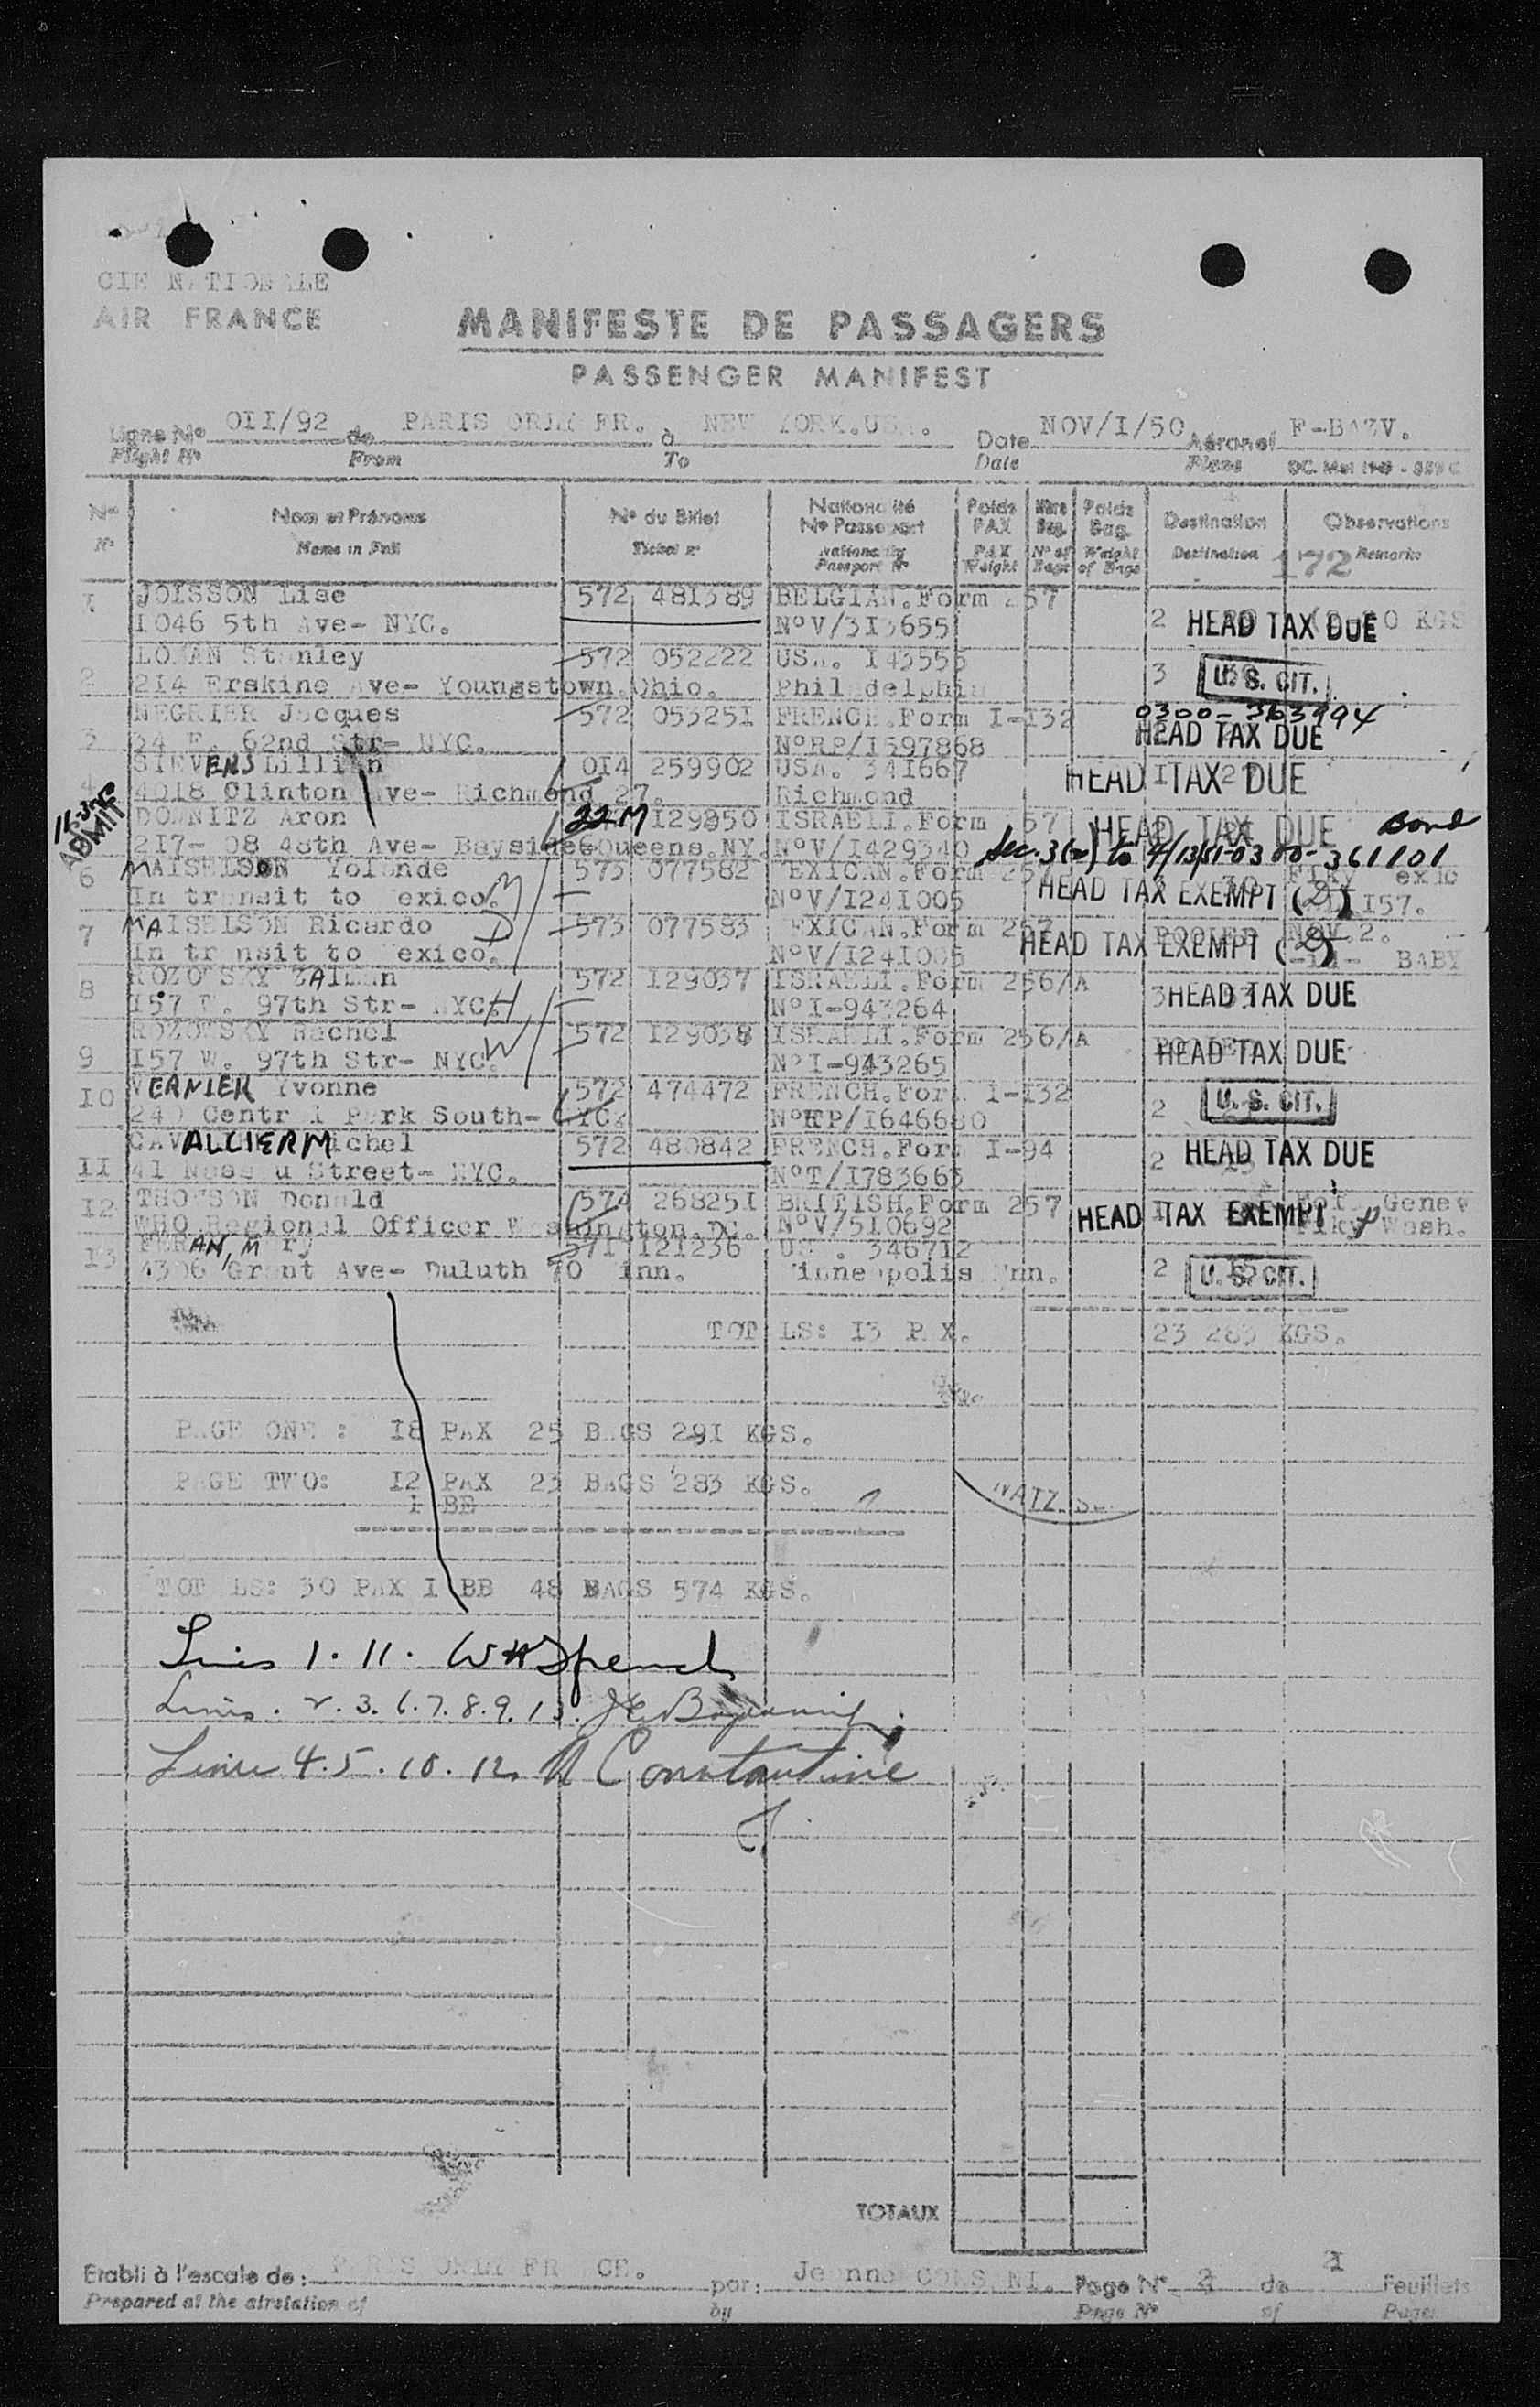 CIE NATIONALE
AIR FRANCE
MANIFESTE DE PASSAGERS
PASSENGER MANIFEST
Ligne No OII/92 de PARIS ORLY FR. à NEW YORK.USA. Date NOV/I/50 Aéronef F-BAZV.
Flight No From To Date Plane
No Nom et Prénoms No du Billet Nationalité No Passeport Poids PAX Nbre Bag. Poids Bag. Destination Observations
N. Name in Full Ticket no Nationality Passport No PAX Weight No of Bags Weight of Bags Destination 172 Remarks
I JOISSON Lise 572 481389 BELGIAN.Form 257
1046 5th Ave- NYC. NoV/313655 2 HEAD TAX DUE KGS
2 LOMAN Stanley 572 052222 USA. 143555
214 Erskine Ave- Youngstown.Ohio. Philadelphia 3 U.S. CIT.
3 NEGRIER Jacques 572 053251 FRENCH.Form I-132 0300-363994
34 E. 62nd Str- NYC. NoRP/1597868 HEAD TAX DUE
4 STEVENS Lillian 014 259902 USA. 341667 HEAD TAX DUE
4018 Clinton Ave- Richmond 27. Richmond
ADMIT DOMNITZ Aron 22M 129250 ISRAELI.Form 257 HEAD TAX DUE Bond
217- 08 48th Ave- Bayside-Queens.NY. NoV/1429340 Sec. 3(2) to 4/13/51-0300-361101
6 MAISELSON Yolande 573 077582 MEXICAN.Form 257
In transit to Mexico. M NoV/1241005 HEAD TAX EXEMPT (2) 157.
7 MAISELSON Ricardo 573 077583 MEXICAN.Form 257 NOV.2.
In transit to Mexico. D NoV/1241005 HEAD TAX EXEMPT (2) BABY
8 ROZOVSKY ZALMAN 572 129037 ISRAELI.Form 256/A
157 W. 97th Str- NYC. H NoI-943264 3 HEAD TAX DUE
9 ROZOVSKY Rachel 572 129038 ISRAELI.Form 256/A
157 W. 97th Str- NYC. W NoI-943265 HEAD TAX DUE
10 VERNIER Yvonne 572 474472 FRENCH.Form I-132
240 Central Park South- NYC. NoRP/1646680 2 U.S. CIT.
11 CAVALLIER Michel 572 480842 FRENCH.Form I-94
41 Nassau Street- NYC. NoT/1783663 2 HEAD TAX DUE
12 THOMSON Donald 574 268251 BRITISH.Form 257 Genev
WHO Regional Officer Washington.DC. NoV/510692 HEAD TAX EXEMPT Wash.
13 AN, Mary 571 121236 USA. 346712
4306 Grant Ave- Duluth Minn. Minneapolis Mnn. 2 U.S. CIT.
TOTALS: 13 PAX. 23 283 KGS.
PAGE ONE : 18 PAX 25 BAGS 291 KGS.
PAGE TWO: 12 PAX 23 BAGS 283 KGS.
1 BB
TOTALS: 30 PAX I BB 48 BAGS 574 KGS.
Lines 1. 11. W H Spench
Lines. 2. 3. 6. 7. 8. 9. 13.
Lines 4. 5. 10. 12. A Constantine
TOTAUX
Etabli à l'escale de: PARIS ORLY FRANCE. par: Jeanne Page No 2 de 2 Feuillets
Prepared at the airstation of by Page No of Pages